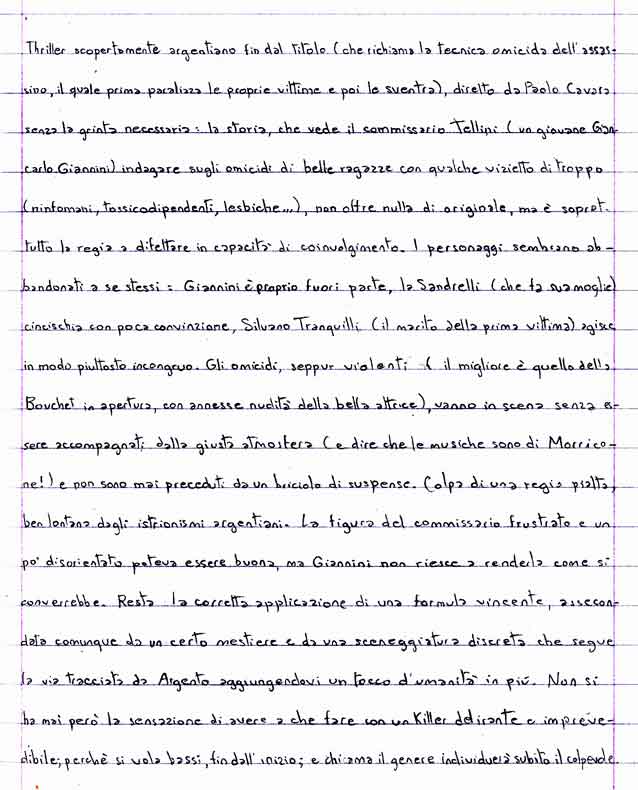 Thriller scopertamente argentiano fin dal titolo (che richiama la tecnica omicida dell'assas-
sino, il quale prima paralizza le proprie vittime e poi le sventra), diretto da Paolo Cavara
senza la grinta necessaria: la storia, che vede il commissario Tellini (un giovane Gian-
carlo Giannini) indagare sugli omicidi di belle ragazze con qualche vizietto di troppo
(ninfomani, tossicodipendenti, lesbiche...), non offre nulla di originale, ma è soprat-
tutto la regia a difettare in capacità di coinvolgimento. I personaggi sembrano ab-
bandonati a se stessi: Giannini è proprio fuori parte, la Sandrelli (che fa sua moglie)
cincischia con poca convinzione, Silvano Tranquilli (il marito della prima vittima) agisce
in modo piuttosto incongruo. Gli omicidi, seppur violenti (il migliore è quello della
Bouchet in apertura, con annesse nudità della bella attrice), vanno in scena senza es-
sere accompagnati dalla giusta atmosfera (e dire che le musiche sono di Morrico-
ne!) e non sono mai preceduti da un briciolo di suspense. Colpa di una regia piatta,
ben lontana dagli istrionismi argentiani. La figura del commissario frustrato e un
po' disorientato poteva essere buona, ma Giannini non riesce a renderla come si
converrebbe. Resta la corretta applicazione di una formula vincente, assecon-
data comunque da un certo mestiere e da una sceneggiatura discreta che segue
la via tracciata da Argento aggiungendovi un tocco d'umanità in più. Non si
ha mai però la sensazione di avere a che fare con un Killer delirante e impreve-
dibile; perchè si vola bassi, fin dall'inizio; e chi ama il genere individuerà subito il colpevole.